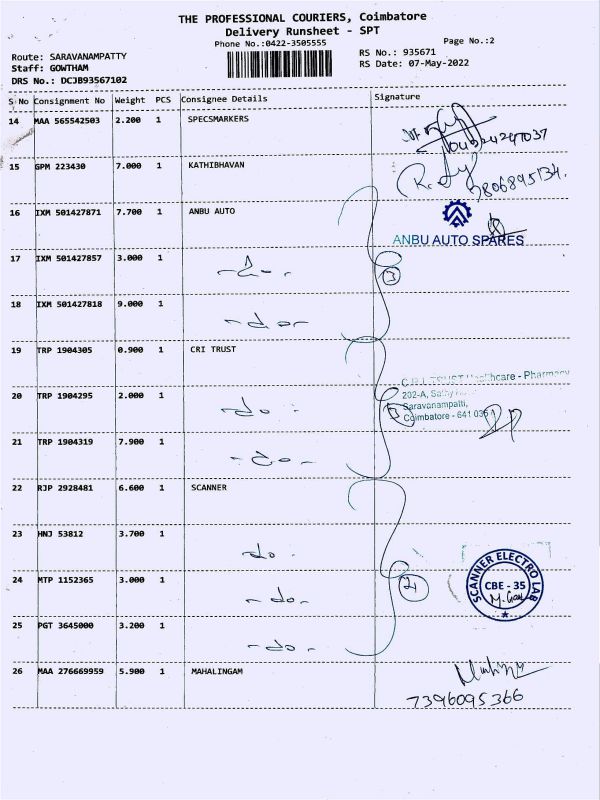 THE PROFESSIONAL COURIERS, Coimbatore
Delivery Runsheet - SPT
Phone No.:0422-3505555
Page No.:2
Route: SARAVANAMPATTY
RS No.: 935671
Staff: GOWTHAM
RS Date: 07-May-2022
DRS No.: DCJB93567102
S No Consignment No Weight PCS Consignee Details Signature
14 MAA 565542503 2.200 1 SPECSMARKERS
15 GPM 223430 7.000 1 KATHIBHAVAN
16 IXM 501427871 7.700 1 ANBU AUTO
ANBU AUTO SPARES
17 IXM 501427857 3.000 1
3
18 IXM 501427818 9.000 1 -do-
19 TRP 1904305 0.900 1 CRI TRUST
C.R.I. TRUST Healthcare - Pharmacy
20 TRP 1904295 2.000 1 -do-
202-A, Sathy
Saravanampatti,
Coimbatore - 641 035
3
21 TRP 1904319 7.900 1 -do-
22 RJP 2928481 6.600 1 SCANNER
23 HNJ 53812 3.700 1 -do-
24 MTP 1152365 3.000 1 -do-
SCANNER ELECTRO LAB
CBE - 35
25 PGT 3645000 3.200 1 -do-
26 MAA 276669959 5.900 1 MAHALINGAM
7396095366